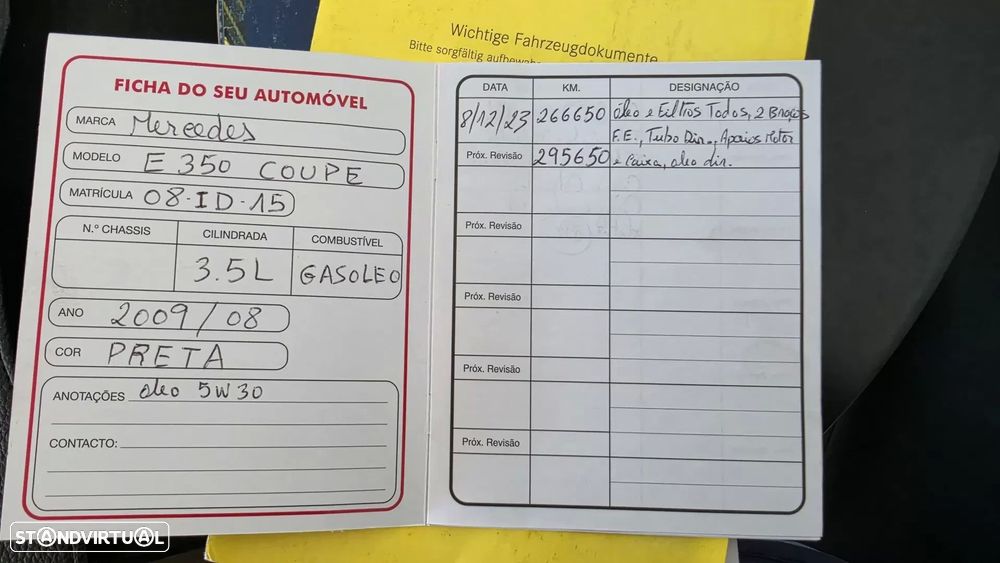 Wichtige Fahrzeugdokumente
Bitte sorgfältig aufbewahren
FICHA DO SEU AUTOMÓVEL
MARCA Mercedes
MODELO E 350 COUPE
MATRÍCULA 08-ID-15
N.º CHASSIS CILINDRADA COMBUSTÍVEL
3.5L GASOLEO
ANO 2009/08
COR PRETA
ANOTAÇÕES oleo 5W30
CONTACTO:
DATA KM. DESIGNAÇÃO
8/12/23 266650 óleo e Filtros Todos, 2 Braços
F.E., Tubo Dir., Apoios Motor
Próx. Revisão 295650 e Caixa, oleo dir.
Próx. Revisão
Próx. Revisão
Próx. Revisão
Próx. Revisão
STANDVIRTUAL